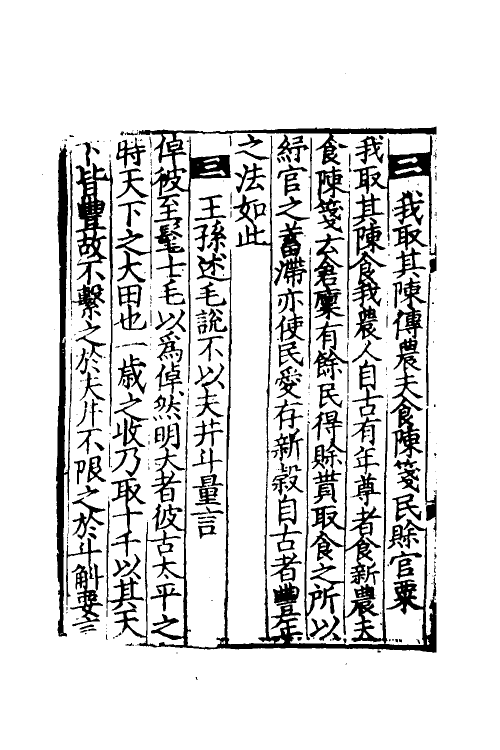 二 我取其陳傳農夫食陳箋民賖官粟
我取其陳食我農人自古有年尊者食新農夫
食陳箋云倉廩有餘民得賖貰取食之所以
紓官之蓄滯亦使民愛存新穀自古者豐年
之法如此
三 王孫述毛說不以夫井斗量言
倬彼至髦士毛以爲倬然明大者彼古太平之
特天下之大田也一歲之收乃取十千以其天
下皆豐故不繫之於夫井不限之於斗斛要言